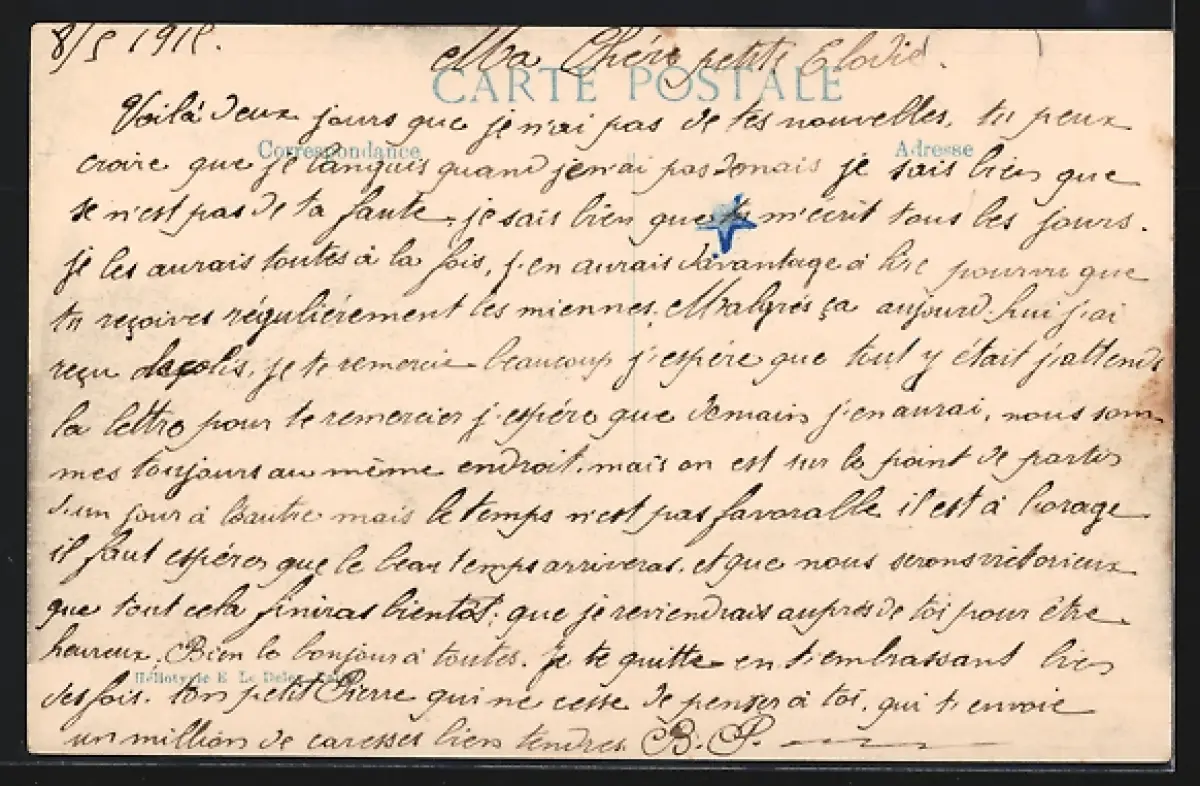 8/5 1915.
Ma Chère petite Elodie.
CARTE POSTALE
Voilà deux jours que je n'ai pas de tes nouvelles, tu peux
Correspondance
Adresse
croire que je languis quand j'en ai pas Jemais je sais bien que
se n'est pas de ta faute, je sais bien que tu m'écrit tous les jours.
je les aurais toutes à la fois, j'en aurais davantage à lire pourvu que
tu reçoives régulièrement les miennes. Malgrés ça aujourd'hui j'ai
reçu le colis, je te remercie beaucoup j'espère que tout y était j'attends
la lettre pour te remercier j'espère que demain j'en aurai, nous som-
mes toujours au même endroit, mais on est sur le point de partir
d'un jour à l'autre mais le temps n'est pas favorable il est à l'orage
il faut espérer que le beau temps arriveras, et que nous serons victorieux
que tout cela finiras bientôt; que je reviendrais auprès de toi pour être
heureux, Bien le bonjour à toutes. Je te quitte en t'embrassant bien
Héliotypie E. Le Deley
des fois. ton petit Pierre qui ne cesse de penser à toi, qui t'envoie
un million de caresses bien tendres B. P.